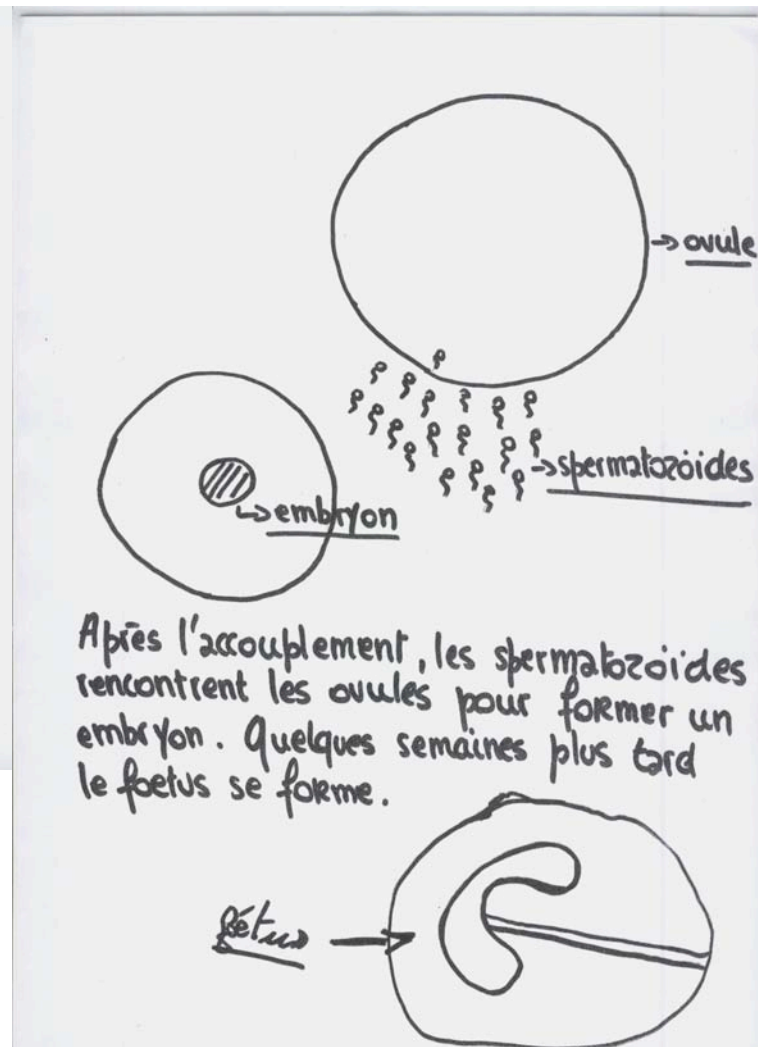 ovule
spermatozoides
embryon
Après l'accouplement, les spermatozoïdes
rencontrent les ovules pour former un
embryon. Quelques semaines plus tard
le foetus se forme.
fétus